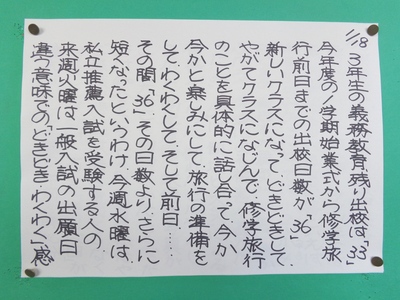 1/18
3年生の義務教育、残り出校は「33」
今年度の1学期始業式から修学旅
行前日までの出校日数が「36」
新しいクラスになって、どきどきして
やがてクラスになじんで、修学旅行
のことを具体的に話し合って、今か
今かと楽しみにして、旅行の準備を
して、わくわくして、そして前日……
その間「36」その日数より、さらに
短くなったというわけ。今週水曜は、
私立推薦入試を受験する人の、
来週火曜は、一般入試の出願日
違う意味での「どきどき・わくわく」感